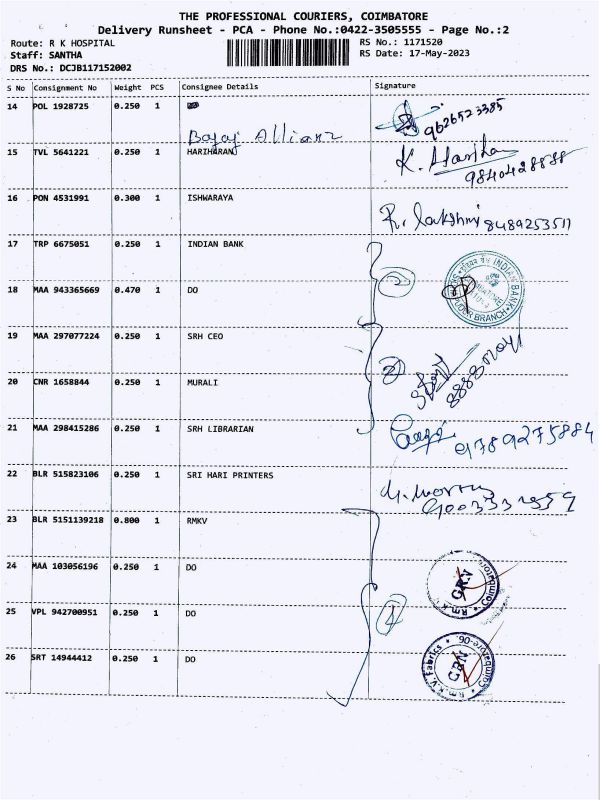 THE PROFESSIONAL COURIERS, COIMBATORE
Delivery Runsheet - PCA - Phone No.:0422-3505555 - Page No.:2
Route: R K HOSPITAL
RS No.: 1171520
Staff: SANTHA
RS Date: 17-May-2023
DRS No.: DCJB117152002
S No Consignment No Weight PCS Consignee Details Signature
14 POL 1928725 0.250 1
9626523385
Bajaj Allianz
15 TVL 5641221 0.250 1 HARIHARANJ
K. Hariharan
9840428888
16 PON 4531991 0.300 1 ISHWARAYA
R. lakshmi 8489253511
17 TRP 6675051 0.250 1 INDIAN BANK
18 MAA 943365669 0.470 1 DO
INDIAN BANK
BRANCH
19 MAA 297077224 0.250 1 SRH CEO
20 CNR 1658844 0.250 1 MURALI
21 MAA 298415286 0.250 1 SRH LIBRARIAN
9789275884
22 BLR 515823106 0.250 1 SRI HARI PRINTERS
23 BLR 5151139218 0.800 1 RMKV
24 MAA 103056196 0.250 1 DO
GRN
25 VPL 942700951 0.250 1 DO
26 SRT 14944412 0.250 1 DO
Rm.K.V. Fabrics
GRN
Coimbatore-06.